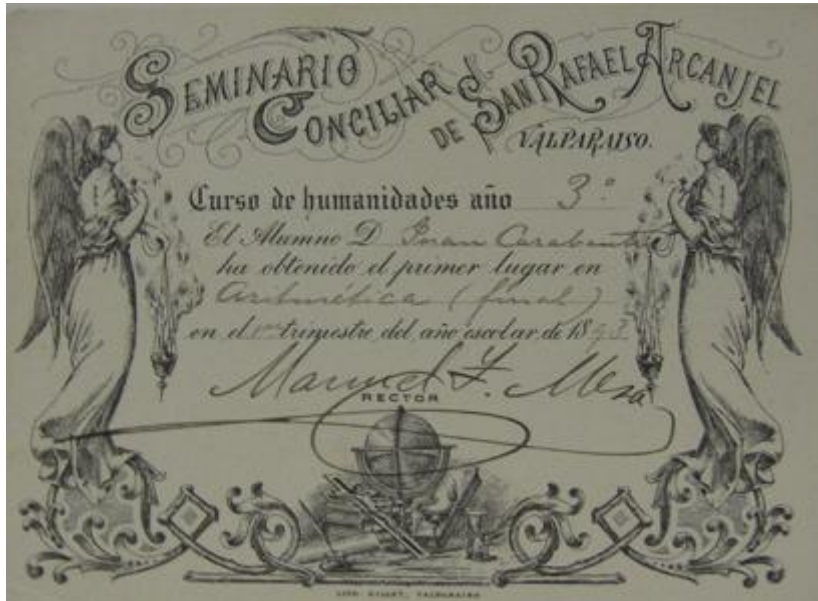 SEMINARIO
CONCILIAR DE SAN RAFAEL ARCANJEL
VALPARAISO.
Curso de humanidades año 3.º
El Alumno D Juan Carabantes
ha obtenido el primer lugar en
Aritmética (final)
en el 1er trimestre del año escolar de 1893
Manuel F. Mesa
RECTOR
VALPARAISO